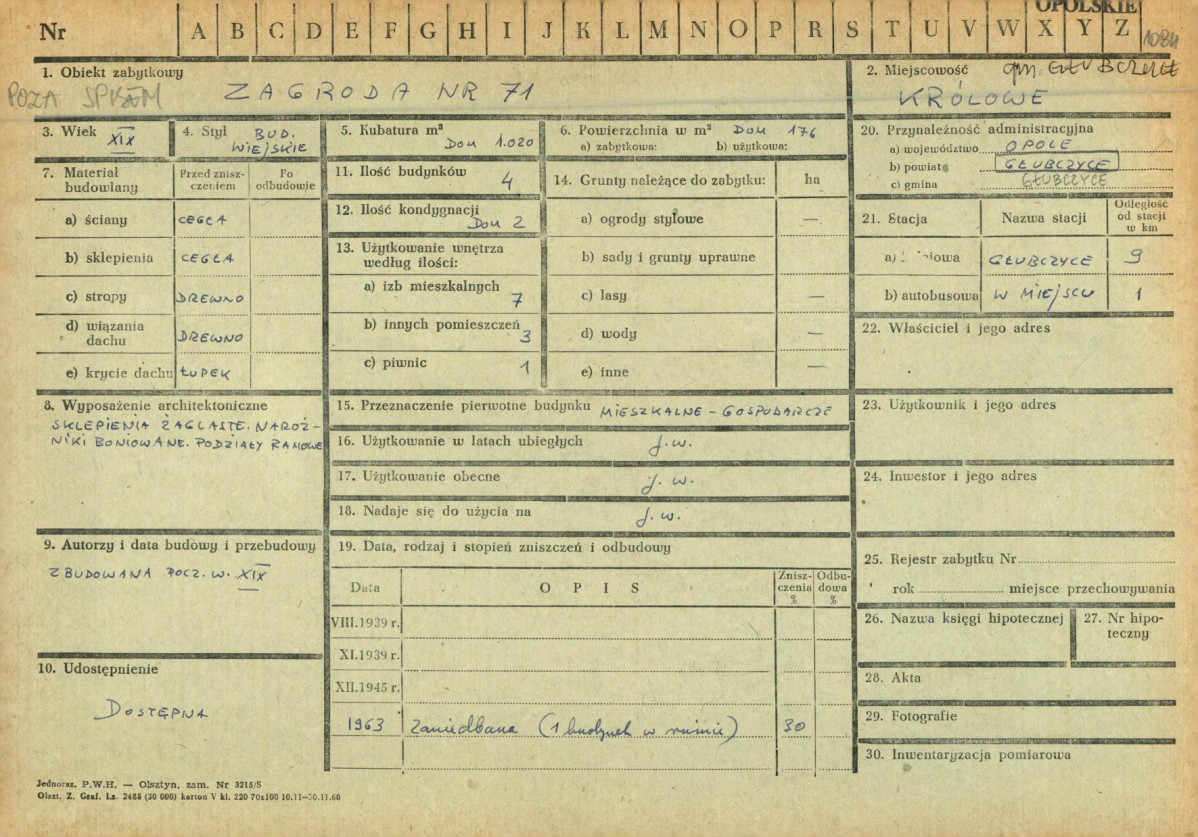 OPOLSKIE
Nr A B C D E F G H I J K L M N O P R S T U V W X Y Z 1084
1. Obiekt zabytkowy
POZA SPISEM ZAGRODA NR 71
2. Miejscowość gm. GŁUBCZYCE
KRÓLOWE
3. Wiek XIX
4. Styl BUD. WIEJSKIE
5. Kubatura m³
DOM 1.020
6. Powierzchnia w m² DOM 176
a) zabytkowa: b) użytkowa:
7. Materiał budowlany
Przed zniszczeniem
Po odbudowie
a) ściany CEGŁA
b) sklepienia CEGŁA
c) stropy DREWNO
d) wiązania dachu DREWNO
e) krycie dachu ŁUPEK
8. Wyposażenie architektoniczne
SKLEPIENIA ŻAGLASTE. NAROŻ-
NIKI BONIOWANE. PODZIAŁY RAMOWE
9. Autorzy i data budowy i przebudowy
ZBUDOWANA POCZ. W. XIX
10. Udostępnienie
DOSTĘPNA
11. Ilość budynków 4
12. Ilość kondygnacji
DOM 2
13. Użytkowanie wnętrza
według ilości:
a) izb mieszkalnych 7
b) innych pomieszczeń 3
c) piwnic 1
14. Grunty należące do zabytku: ha
a) ogrody stylowe —
b) sady i grunty uprawne
c) lasy —
d) wody —
e) inne —
15. Przeznaczenie pierwotne budynku MIESZKALNE - GOSPODARCZE
16. Użytkowanie w latach ubiegłych j. w.
17. Użytkowanie obecne j. w.
18. Nadaje się do użycia na j. w.
19. Data, rodzaj i stopień zniszczeń i odbudowy
Data O P I S Zniszczenia % Odbudowa %
VIII.1939 r.
XI.1939 r.
XII.1945 r.
1963 Zaniedbana (1 budynek w ruinie) 30
20. Przynależność administracyjna
a) województwo OPOLE
b) powiat GŁUBCZYCE
c) gmina GŁUBCZYCE
21. Stacja Nazwa stacji Odległość od stacji w km
a) GŁUBCZYCE 9
b) autobusowa W MIEJSCU 1
22. Właściciel i jego adres
23. Użytkownik i jego adres
24. Inwestor i jego adres
25. Rejestr zabytku Nr
rok miejsce przechowywania
26. Nazwa księgi hipotecznej
27. Nr hipoteczny
28. Akta
29. Fotografie
30. Inwentaryzacja pomiarowa
Jednoraz. P.W.H. — Olsztyn, zam. Nr 3215/S
Olszt. Z. Graf. Lz. 2485 (30 000) karton V kl. 220 70x100 10.11—30.11.60